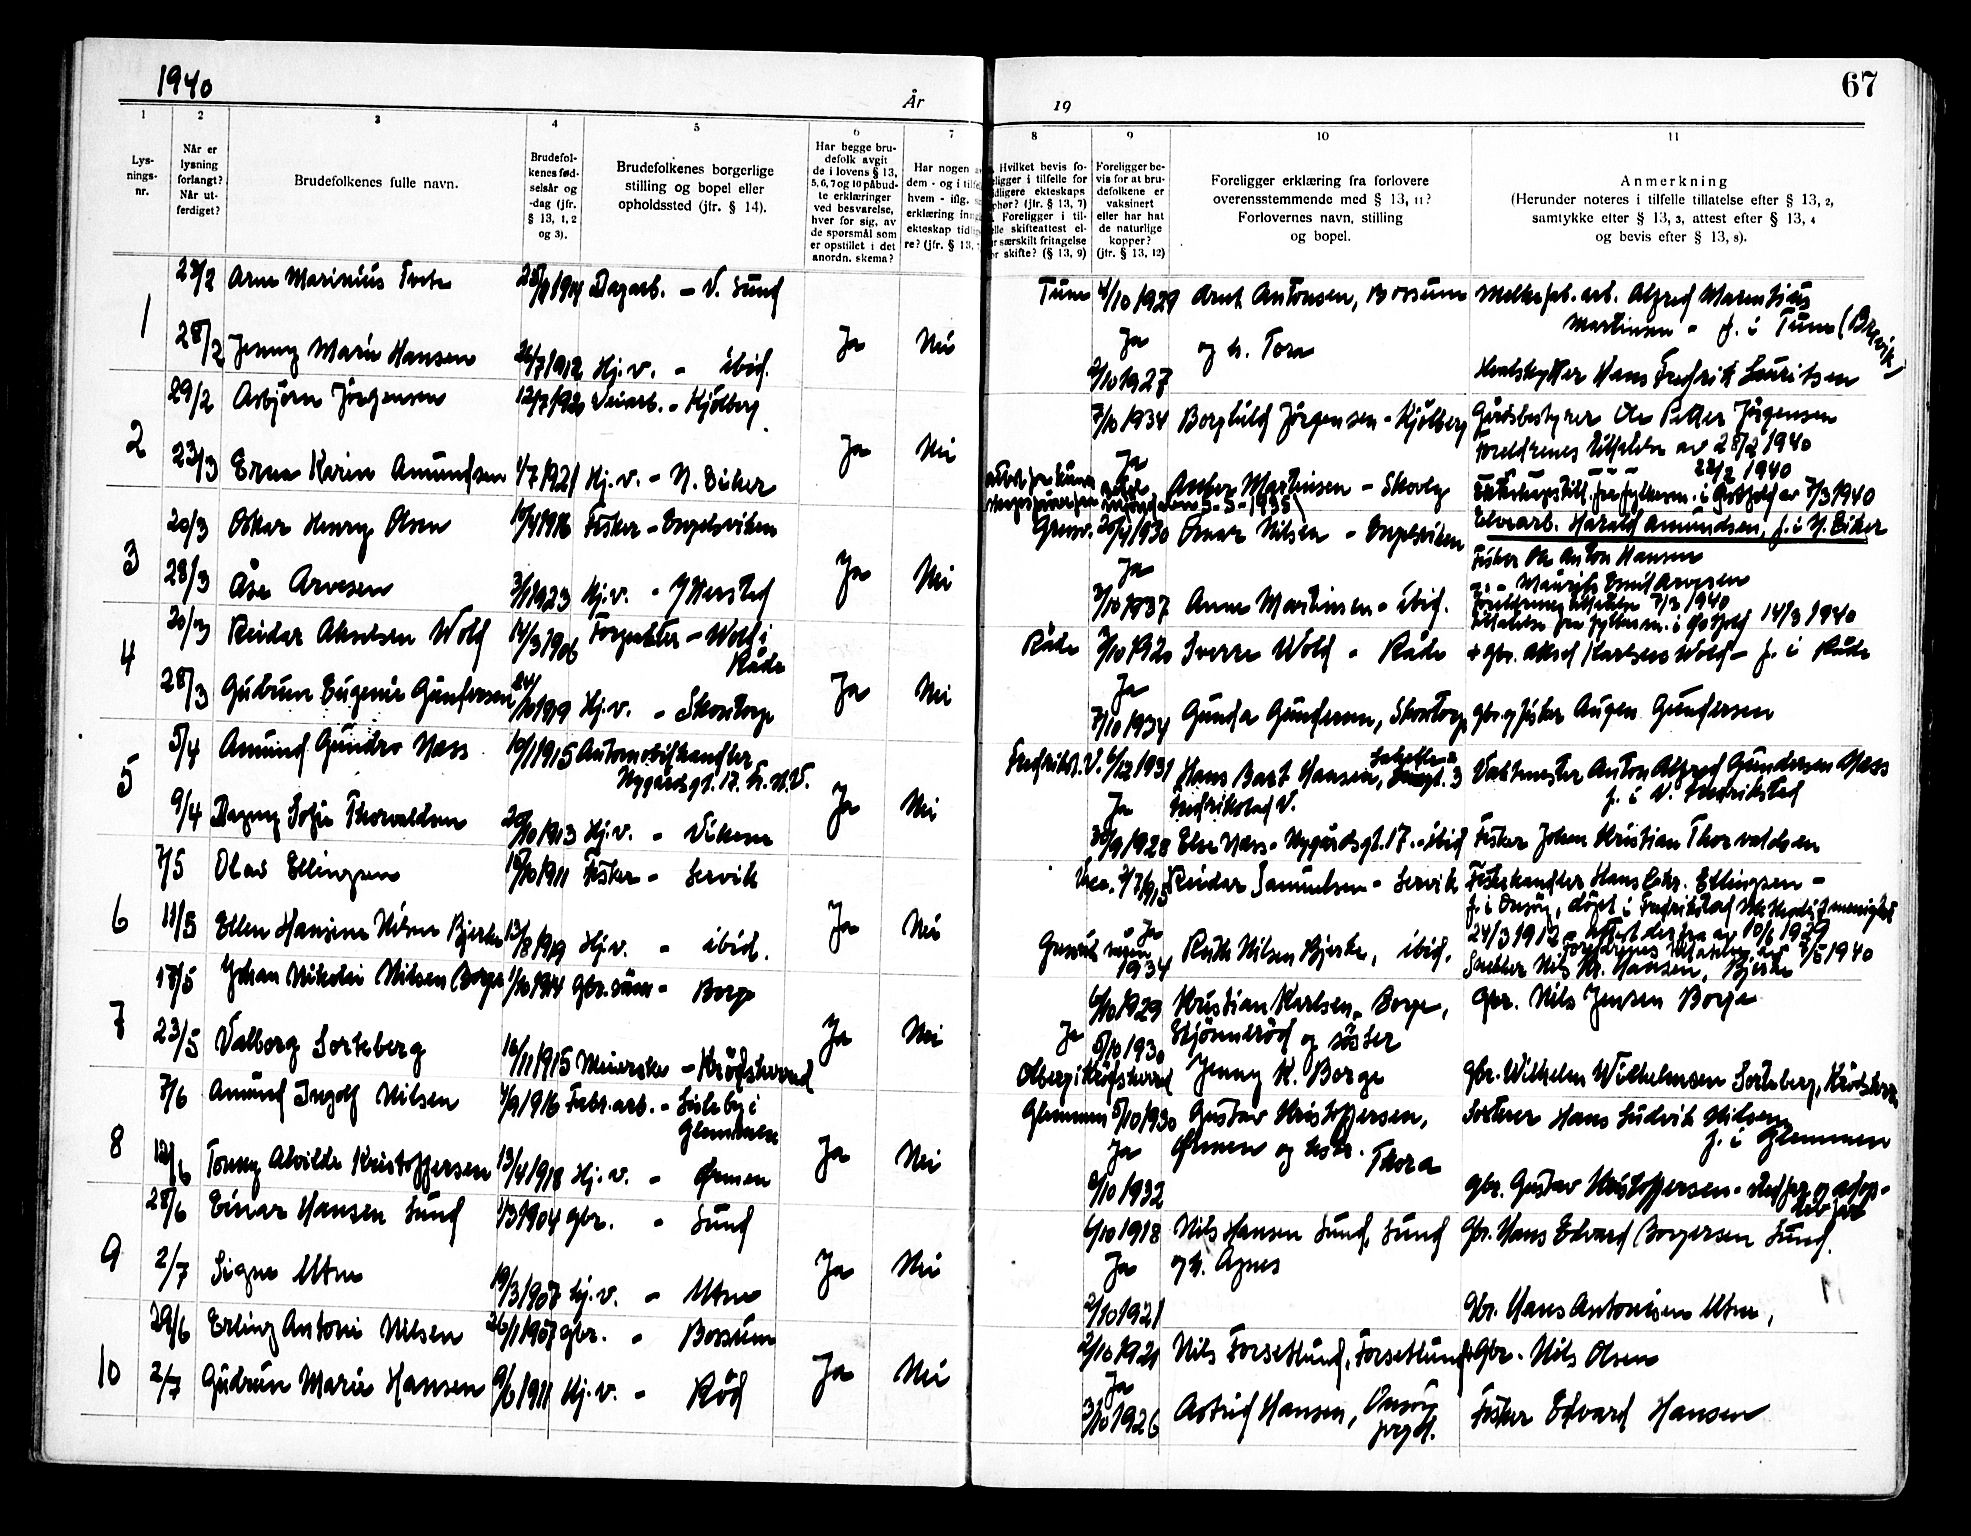 1940
År
19
67
1 2 3 4 5 6 7 8 9 10 11
Lys-
nings-
nr.
Når er
lysning
forlangt?
Når ut-
ferdiget?
Brudefolkenes fulle navn.
Brudefol-
kenes fød-
selsår og
-dag (jfr.
§ 13, 1, 2
og 3).
Brudefolkenes borgerlige
stilling og bopel eller
opholdssted (jfr. § 14).
Har begge bru-
defolk avgit
de i lovens § 13,
5, 6, 7 og 10 påbud-
te erklæringer
ved besvarelse,
hver for sig, av
de spørsmål som
er opstillet i det
anordn. skema?
Har nogen
dem - og i tilf
hvem - iflg.
erklæring inng
ekteskap tidl
re? (jfr. § 13,
Hvilket bevis fo-
ligger i tilfelle for
dligere ekteskaps
phør? (jfr. § 13, 7)
Foreligger i til-
elle skifteattest el-
r særskilt fritagelse
or skifte? (§ 13, 9)
Foreligger be-
vis for at bru-
defolkene er
vaksinert
eller har hat
de naturlige
kopper?
(jfr. § 13, 12)
Foreligger erklæring fra forlovere
overensstemmende med § 13, 11?
Forlovernes navn, stilling
og bopel.
Anmerkning
(Herunder noteres i tilfelle tillatelse efter § 13, 2,
samtykke efter § 13, 3, attest efter § 13, 4
og bevis efter § 13, 8).
1
Arne Marinius
Dagarb. - V. Sund
Tune 4/10 1929 Arnt Antonsen, Borsum
arb. Alfred Marentius
Martinsen - f. i Tune (Brevik)
28/2 Jenny Marie Hansen 26/7 1912 Hj.v. - ibid. Ja Nei
Ja og h. Tora
2/10 1927
Hans Fredrik Lauritsen
2
29/2 Asbjørn Jørgensen 12/7 1920 Veiarb. - Kjølberg
7/10 1934 Borghild Jørgensen - Kjølberg
Gårdsbestyrer Ole Petter Jørgensen
Foreldrenes tillatelse av 28/2 1940
23/3 Erna Karin Amundsen 1/7 1921 Hj.v. - N. Eiker Ja Nei
Ja
Martinsen - Skovly
22/2 1940
7/3 1940
Elvearb. Harald Amundsen, f. i N. Eiker
3
20/3 Oskar Henry Olsen 10/4 1916 Fisker - Engelsviken
1930 Einar Nilsen - Engelsviken
Fisker Ole Anton Hansen
28/3 Åse Arvesen 3/1 1923 Hj.v. - Ytterstad Ja Nei
Ja
1937 Anna Martinsen - ibid.
" - Maurits Emil Arvesen
Foreldrenes tillatelse 7/3 1940
14/3 1940
4
20/3 Reidar Akselsen Wold 14/3 1906 - Wold i
Råde
Råde 7/10 1920 Sverre Wold - Råde
gbr. Aksel Karlsen Wold - f. i Råde
28/3 Gudrun Eugenie Gundersen 24/10 1919 Hj.v. - Skovtorp Ja Nei
Ja
7/10 1934 Gunda Gundersen, Skovtorp
gbr. og fisker Augen Gundersen
5
5/4 Amund Gundro Næss 10/1 1915 Automobilhandler
Nygårdsgt. 17. Fr.st.V.
Fredrikst. V. 6/12 1931 Hans Bart Hansen,
Fredrikstad V.
Vaktmester Anton Alfred Gundersen Næss
f. i V. Fredrikstad
9/4 Dagny Sofie Thorvaldsen 20/10 1913 Hj.v. - Vikene Ja Nei
Ja
30/9 1928 Else Næss - Nygårdsgt. 17 - ibid
Fisker Johan Kristian Thorvaldsen
6
7/5 Olav Ellingsen 18/10 1911 Fisker - Lervik
Reidar Samuelsen - Lervik
Fiskehandler Hans Chr. Ellingsen -
f. i Onsøy, døpt i Fredrikstad Metodistmenighet
24/3 1912 - attest derfra av 10/6 1929
11/5 Ellen Hansine Nilsen Bjerke 13/8 1919 Hj.v. - ibid. Ja Nei
Ja
1934 Ruth Nilsen Bjerke, ibid.
Foreldrenes tillatelse 7/5 1940
Snekker Nils Kr. Hansen, Bjerke
7
18/5 Johan Nikolai Nilsen Borge 1/10 1914 gbr.sønn - Borge
6/10 1929 Kristian Karlsen, Borge,
gbr. Nils Jensen Borge
23/5 Valborg Sorteberg 10/11 1915 Meierske - Krødsherred Ja Nei
Ja
5/10 1930 og søster
Jenny K. Borge
Olberg i Krødsherred
gbr. Wilhelm Wilhelmsen Sorteberg, Krødsherr.
8
7/6 Amund Ingolf Nilsen 4/9 1916 Fabr.arb. - Lisleby i
Glemmen
Glemmen 5/10 1930 Gustav Kristoffersen,
Ørmen og hstr. Thora
Sorterer Hans Ludvik Nilsen
f. i Glemmen
12/6 Tonny Alvilde Kristoffersen 13/4 1918 Hj.v. - Ørmen Ja Nei
Ja
2/10 1932
gbr. Gustav Kristoffersen - stedfar og adop-
tivfar
9
28/6 Einar Hansen Lund 1/3 1904 gbr. - Lund
6/10 1918 Nils Hansen Lund, Lund
og h. Agnes
gbr. Hans Edvard Borgersen Lund.
2/7 Signe Utne 19/3 1907 hj.v. - Utne Ja Nei
Ja
2/10 1921
gbr. Hans Antonisen Utne,
10
29/6 Erling Antoni Nilsen 26/1 1907 gbr. - Borsum
2/10 1921 Nils Forsetlund, Forsetlund
Gbr. Nils Olsen
2/7 Gudrun Marie Hansen 9/6 1911 Hj.v. - Rød Ja Nei
Ja
3/10 1926 Astrid Hansen, Onsøy
prgd.
Fisker Edvard Hansen